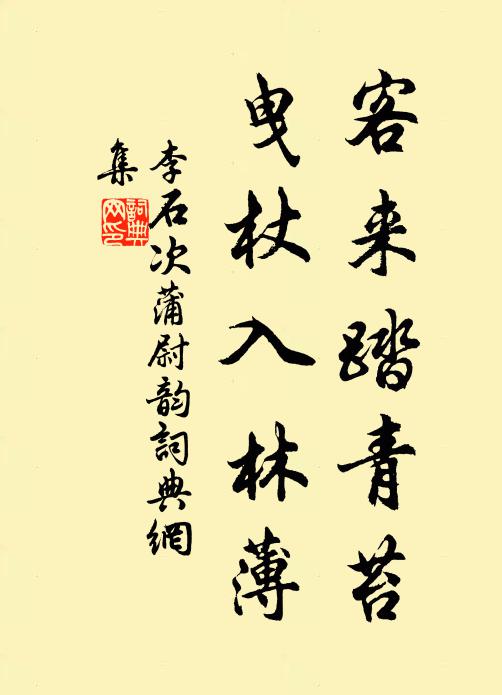 客来踏青苔
曳杖入林薄
李石次蒲尉韵詞典網
集
詞典
网印